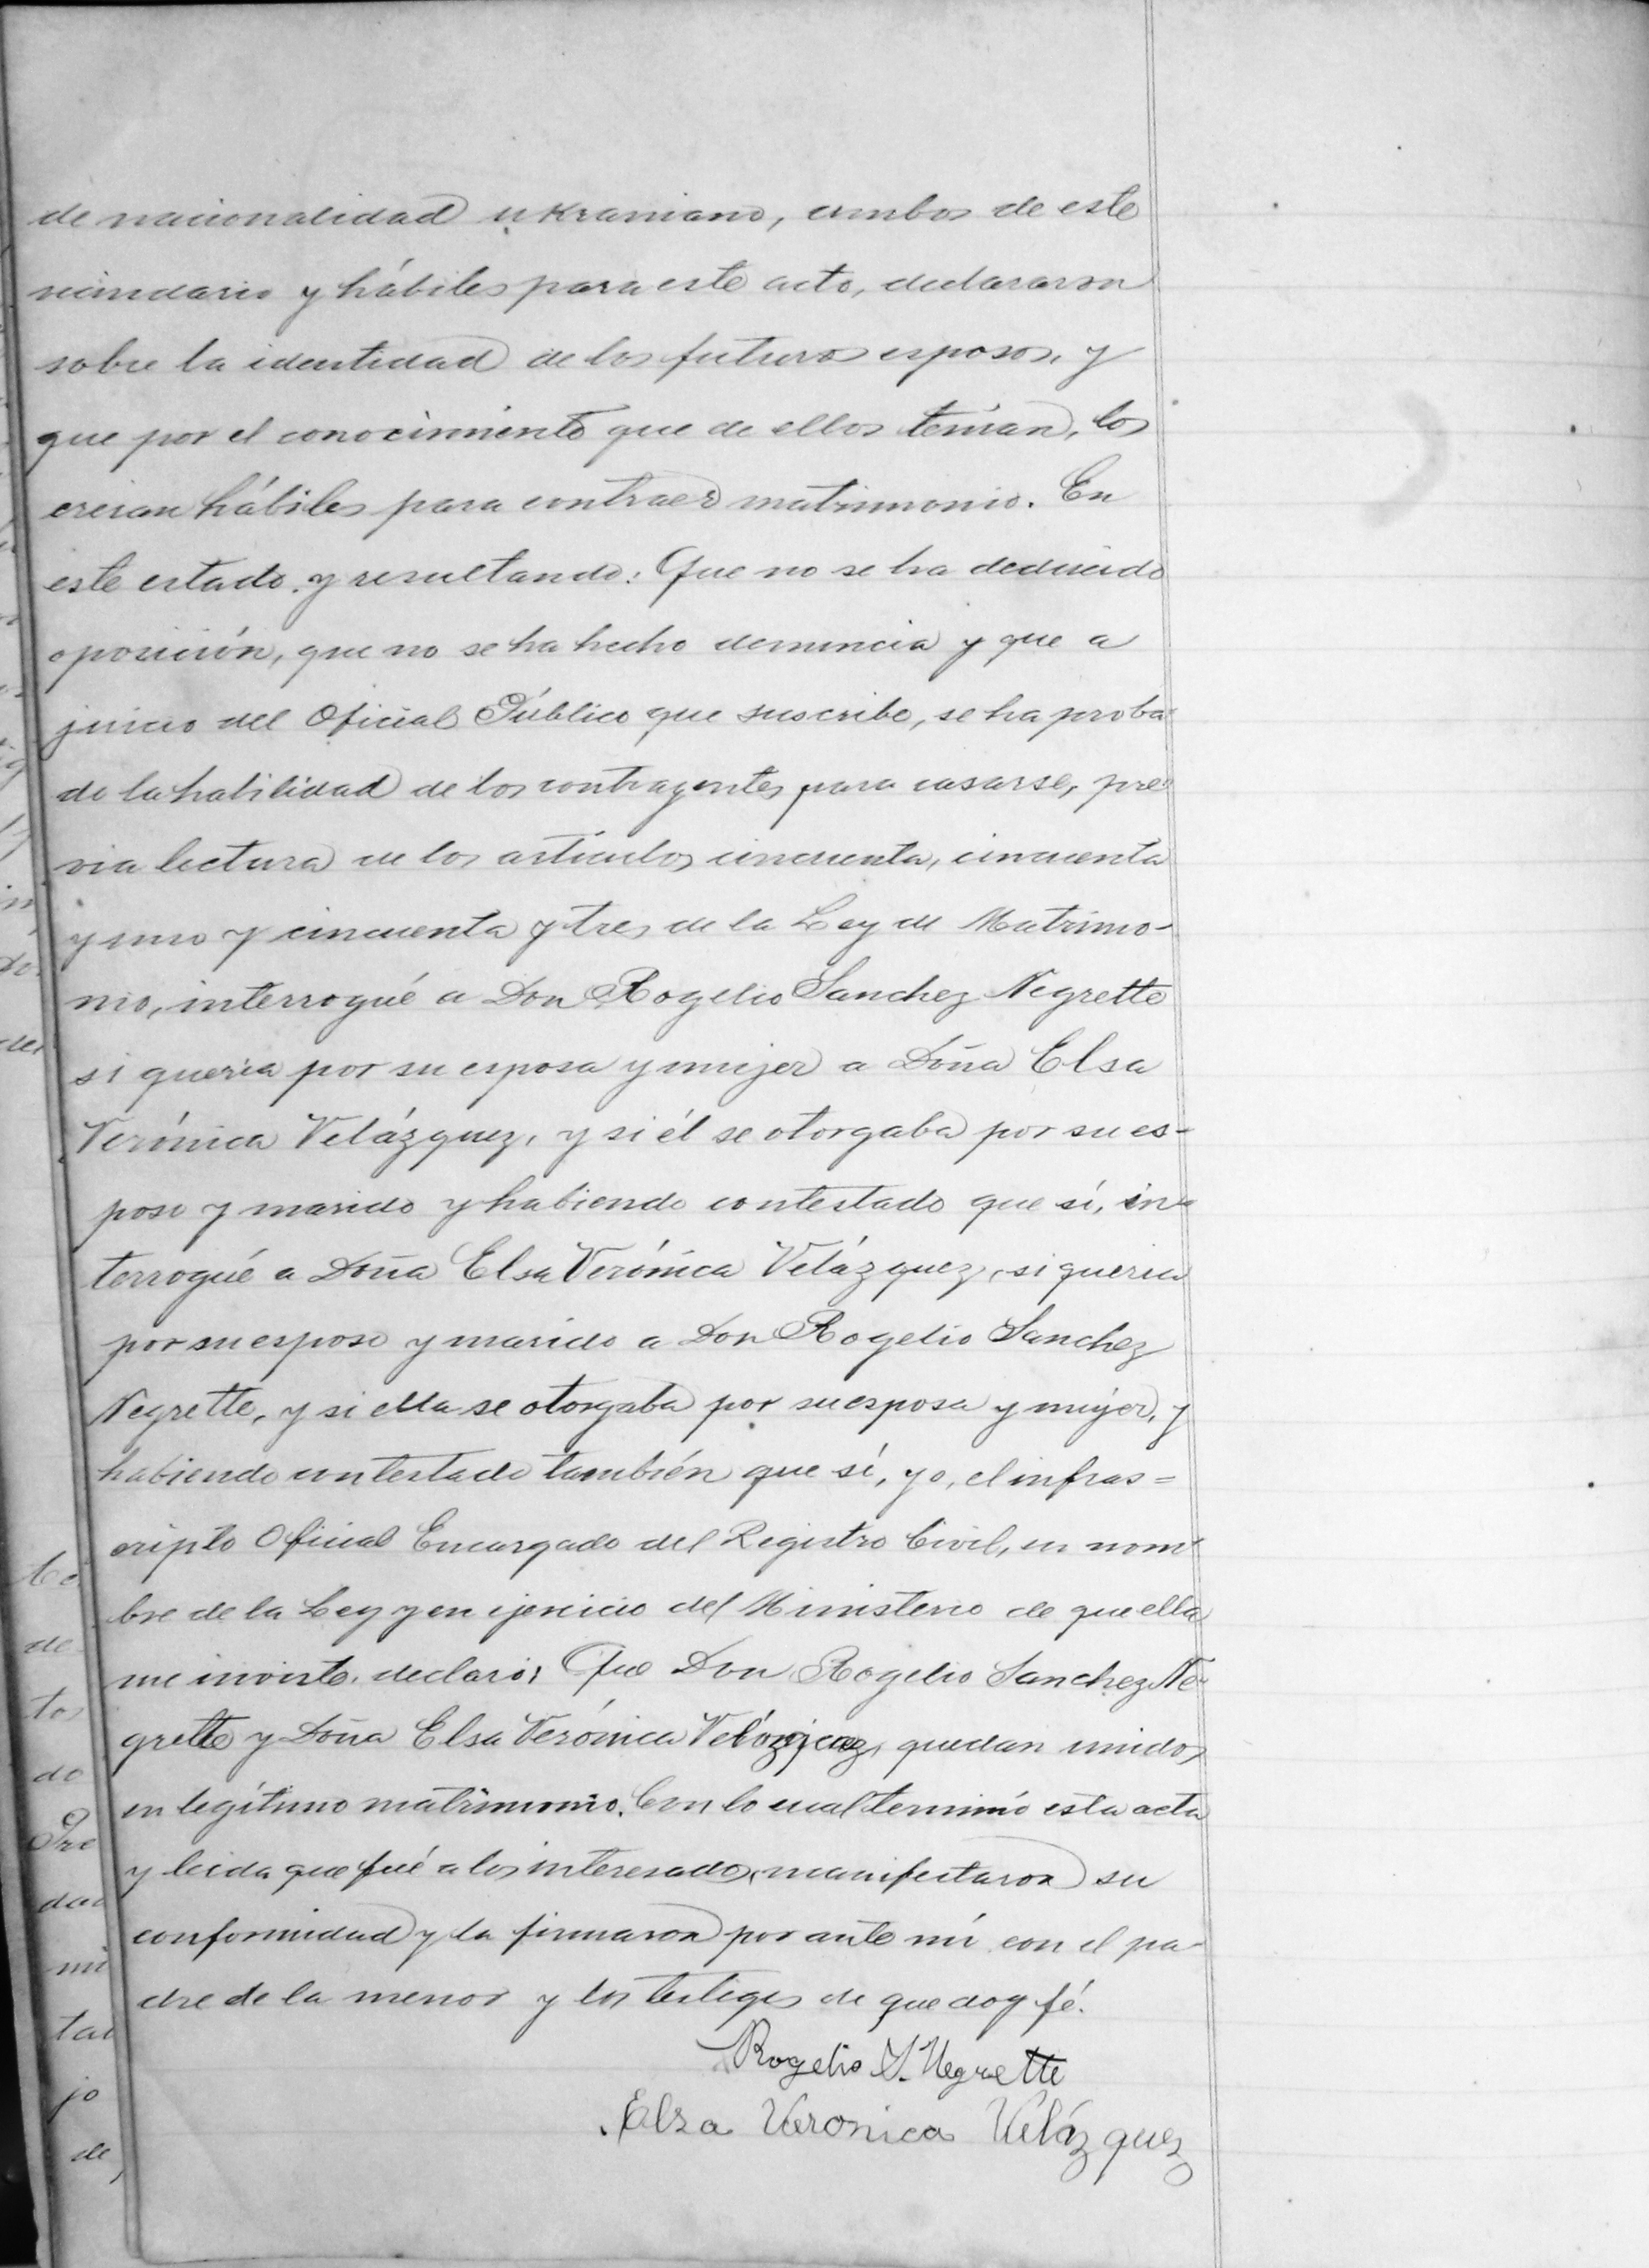 de nacionalidad ukraniano, ambos de este
vecindario y hábiles para este acto, declararon
sobre la identidad de los futuros esposos, y
que por el conocimiento que de ellos tenían, los
creian hábiles para contraer matrimonio. En
este estado, y resultando: Que no se ha deducido
oposición, que no se ha hecho denuncia y que a
juicio del Oficial Público que suscribe, se ha proba-
do la habilidad de los contrayentes para casarse, pre-
via lectura de los artículos cincuenta, cincuenta
y uno y cincuenta y tres de la Ley de Matrimo-
nio, interrogué a Don Rogelio Sanchez Negrette
si queria por su esposa y mujer a Doña Elsa
Verónica Velázquez, y si él se otorgaba por su es-
poso y marido y habiendo contestado que sí, in-
terrogué a Doña Elsa Verónica Velázquez, si queria
por su esposo y marido a Don Rogelio Sanchez
Negrette, y si ella se otorgaba por su esposa y mujer, y
habiendo contestado también que sí, yo, el infras=
cripto Oficial Encargado del Registro Civil, en nom-
bre de la Ley y en ejercicio del Ministerio de que ella
me inviste, declaro: Que Don Rogelio Sanchez Ne-
grette y Doña Elsa Verónica Velázquez, quedan unidos
en legítimo matrimonio. Con lo cual terminó esta acta
y leida que fué a los interesados, manifestaron su
conformidad y la firmaron por ante mí con el pa-
dre de la menor y los testigos de que doy fé.
Rogelio S. Negrette
Elsa Veronica Velázquez